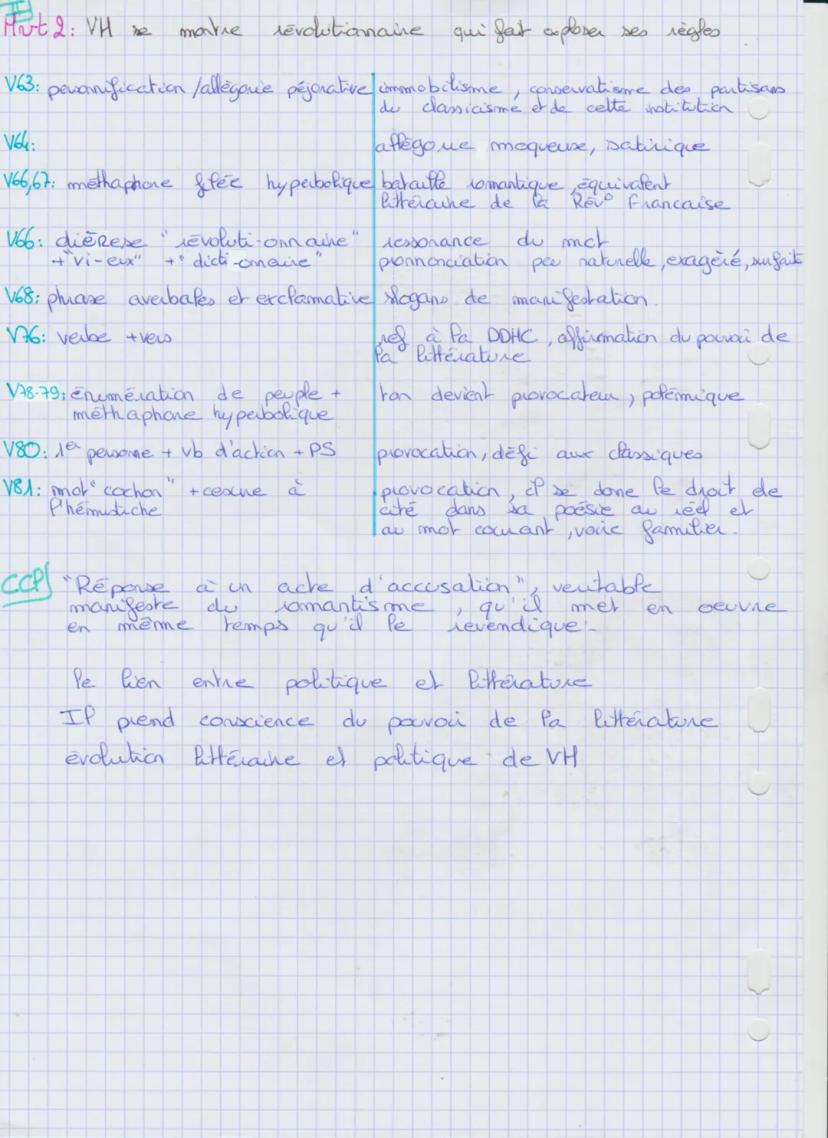 Mvt 2: VH se montre révolutionnaire qui fait exploser ses règles
V63: personnification / allégorie péjorative immobilisme, conservatisme des partisans
du classicisme et de cette institution
V64: allégorie moqueuse, satirique
V66,67: méthaphore filée hyperbolique bataille romantique, équivalent
littéraire de la Rév° Francaise
V66: dièrese "révoluti-onnaire" ressonance du mot
+ "vi-eux" + "dicti-onnaire" prononnciation peu naturelle, exagéré, surfait
V68: phrase averbales et exclammative slogans de manifestation.
V76: verbe + vers ref à la DDHC, affirmation du pouvoir de
la littérature
V78-79: énumération de peuple + ton devient provocateur, polémique
méthaphore hyperbolique
V80: 1er personne + vb d'action + PS provocation, défi aux classiques
V81: mot "cochon" + cesure à provocation, il se donne le droit de
l'hémistiche cité dans sa poésie au réel et
au mot courant, voire familier.
CCP "Réponse à un acte d'accusation", veritable
manifeste du romantisme, qu'il met en oeuvre
en même temps qu'il le revendique.
le lien entre politique et littérature
Il prend conscience du pouvoir de la littérature
évolution littéraire et politique de VH